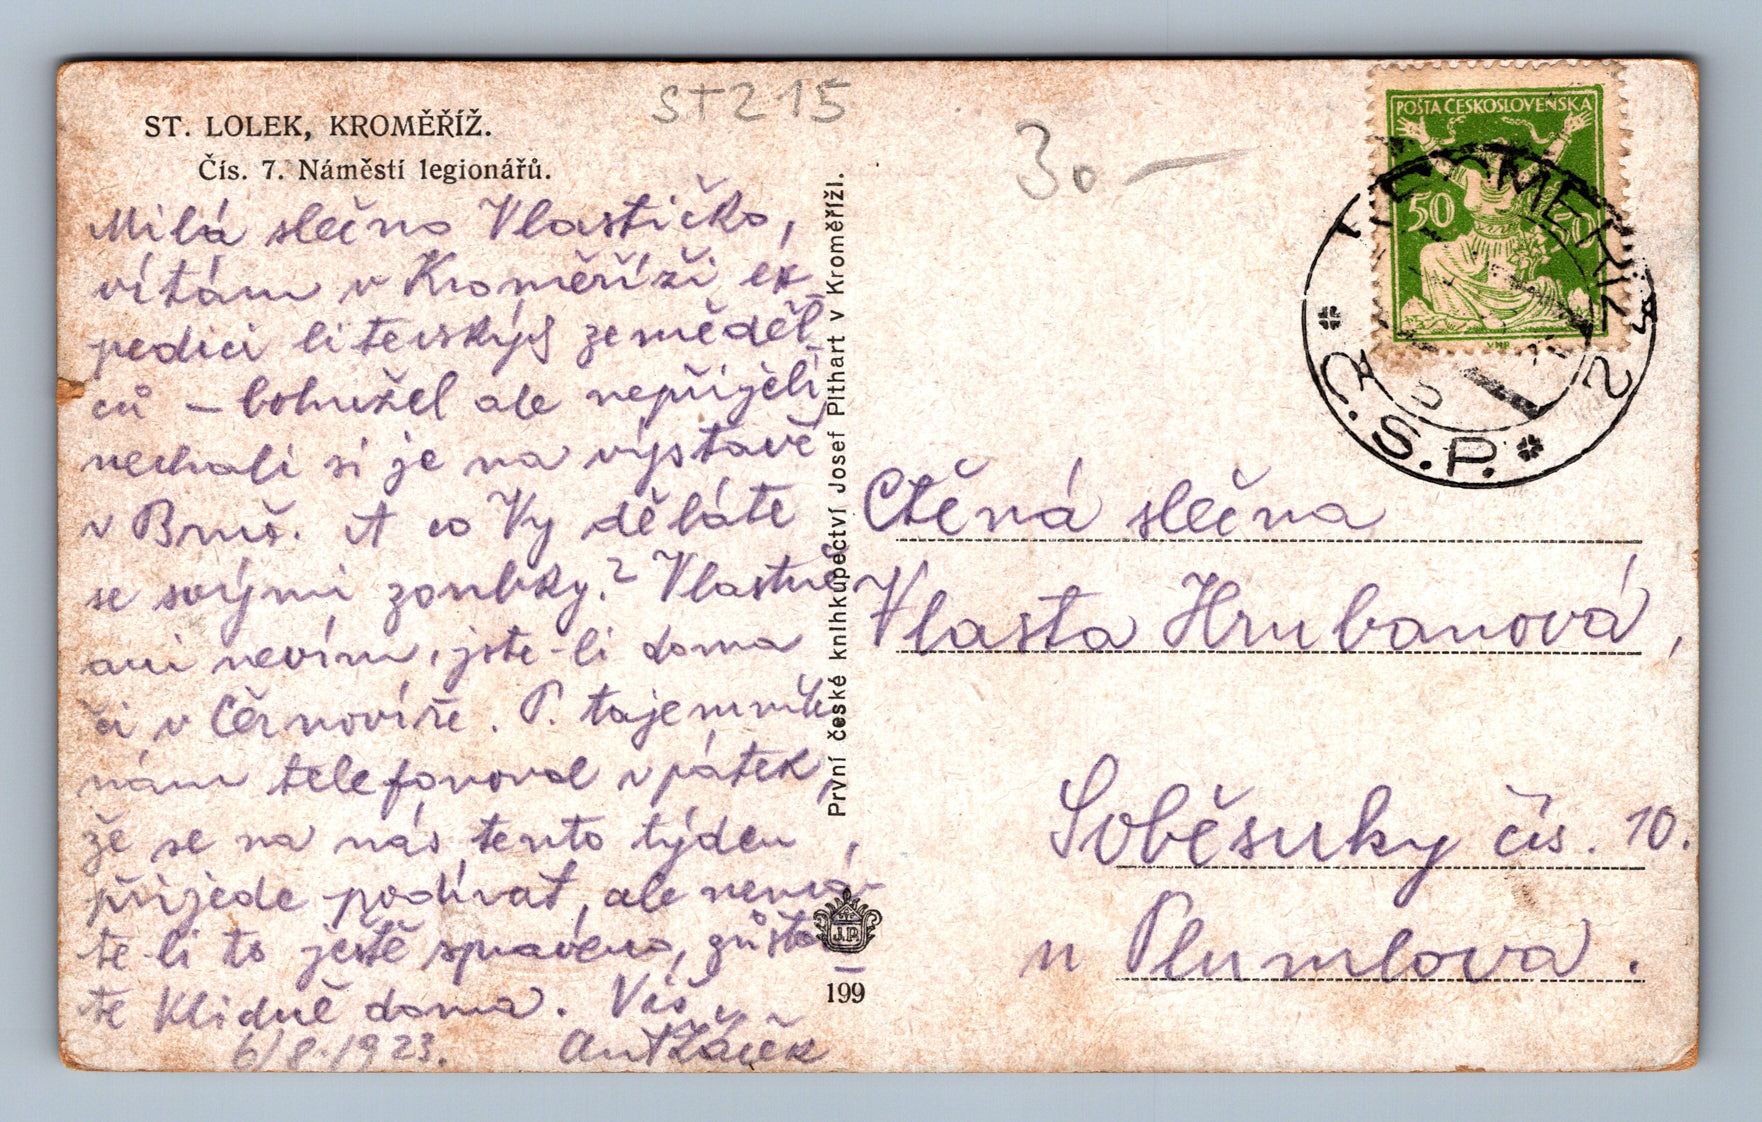 ST215
30 —
ST. LOLEK, KROMĚŘÍŽ.
Čís. 7. Náměstí legionářů.
Milá slečno Vlastičko,
vítám v Kroměříži ex-
pedici litevských zeměděl-
ců – bohužel ale nepřijeli,
nechali si je na výstavě
v Brně. A co Vy děláte
se svými zoubky? Vlastně
ani nevím, jste-li doma
či v Černovíře. P. tajemník
nám telefonoval v pátek,
že se na nás tento týden
přijede podívat, ale nemá-
te-li to ještě spraveno, zůsta-
te klidně doma. Váš
6/8.1923. Ant Žáček
První české knihkupectví Josef Plthart v Kroměříži.
J.P.
199
POŠTA ČESKOSLOVENSKA
50 50
KROMĚŘÍŽ
Č.S.P.
Ctěná slečna
Vlasta Hrubanová,
Soběsuky čís. 10.
u Plumlova.